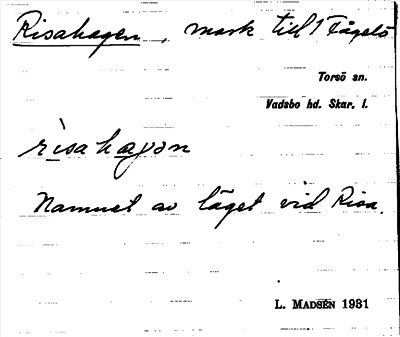 Risahagen, mark till 1 Fågelö
Torsö sn.
Vadsbo hd. Skar. l.
rìsahagən
Namnet av läget vid Risa.
L. MADSÉN 1931